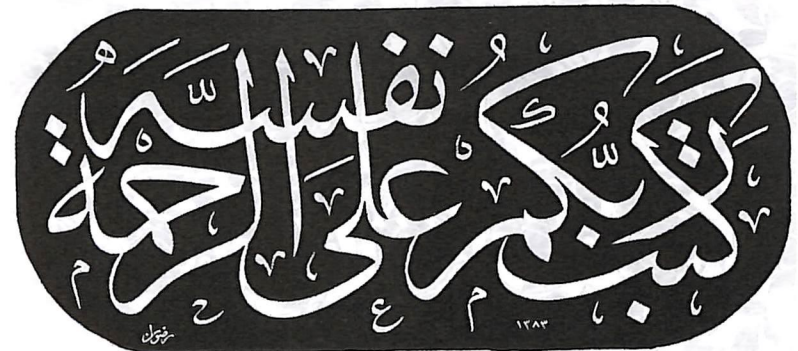 كتب ربكم على نفسه الرحمة
١٣٨٣